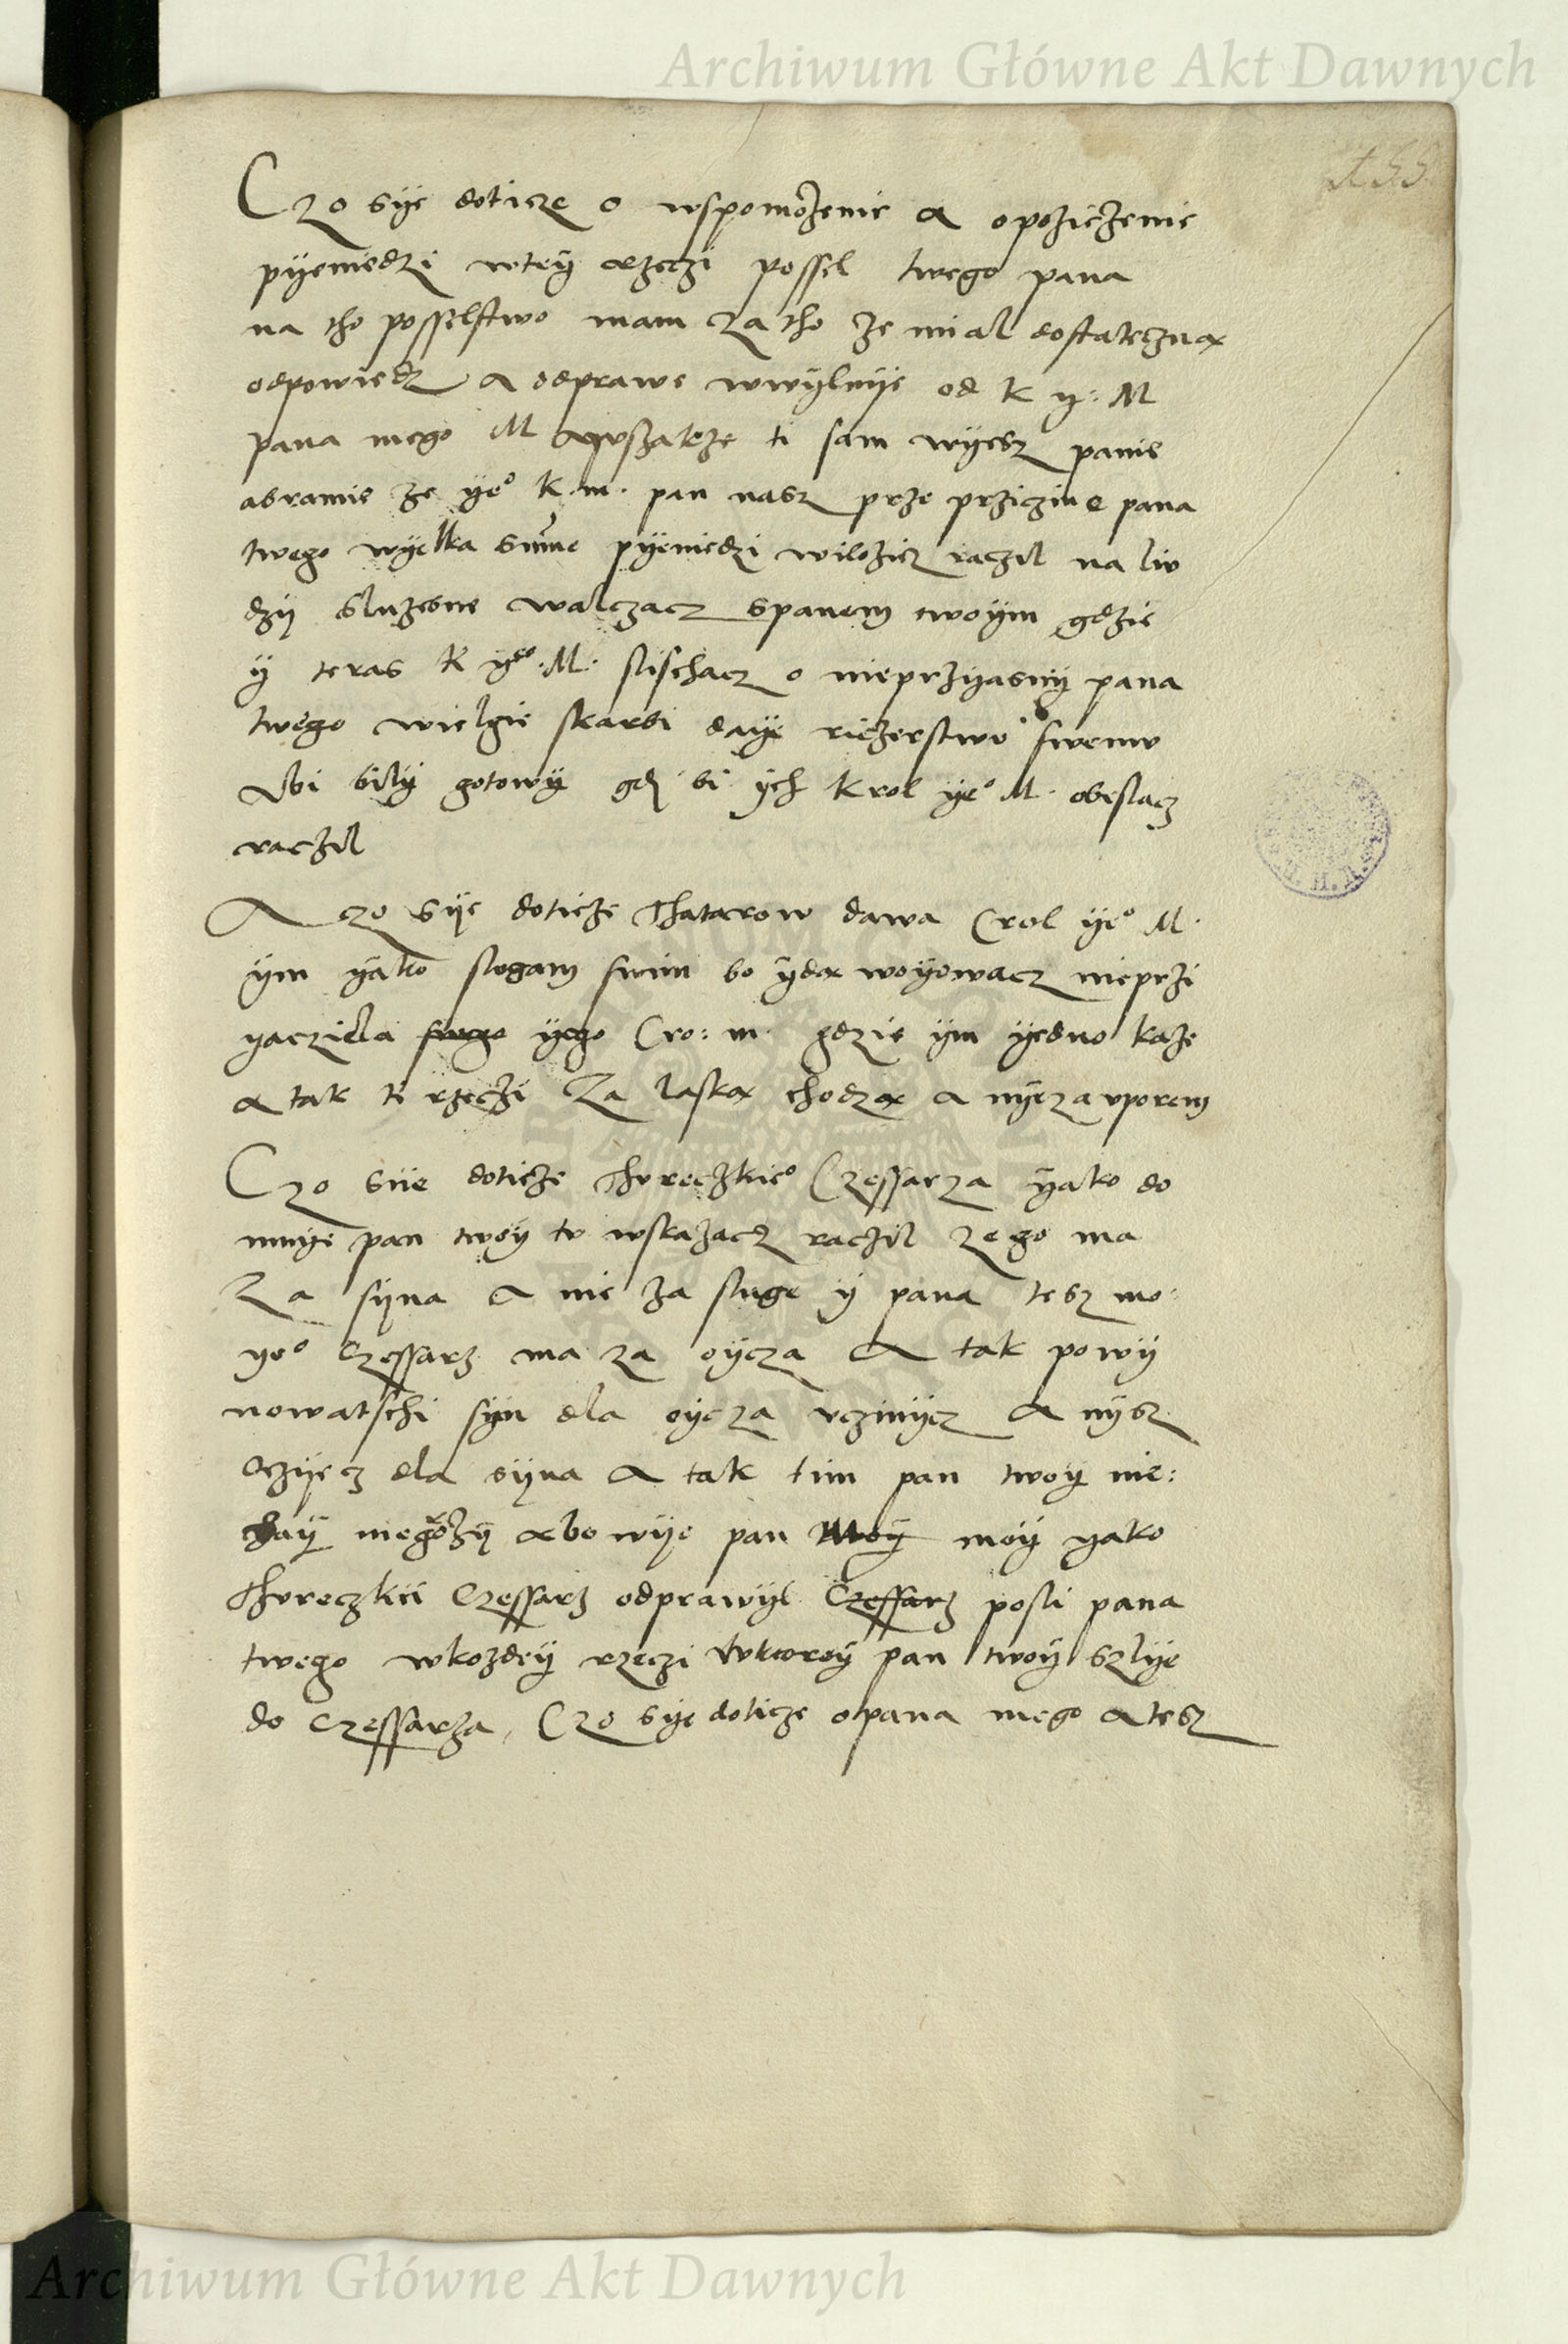 Archiwum Główne Akt Dawnych
155
Czo syę doticze o wspomożenie a opoziczenie
pyeniedzi wtey rzeczi possel twego pana
na tho posselstwo mam za tho że mial dostatecznα
odpowiedz a odprawe wwylnye od K y: M
pana mego M wszakże ti sam wyesz panie
abramie że ye° K. m. pan nasz prze prziczine pana
twego wyelka summe pyeniedzi wilozicz raczil na liv
dzy služebne walczacz spanem twoym gdzie
y teras K ye°. M. slischacz o nieprzyasny pana
twego wielgie skarbi daye riczerstwv swemv
Abi bily gotowy gdi bi ych Krol ye° M. obeslacz
raczil
A czo syę doticze Thatarow dawa Crol ye° M.
ym yako slvgam swim bo ydα woyowacz nieprzi
yacziela swego yego Cro: m. gdzie ym yedno każe
a tak ti rzeczi Za laskα chodzα a nye za vporem
Czo siie doticze Thvreczkie° Czessarza yako do
mnye pan twoy tv wskazacz raczil ze go ma
Za syna a nie za sluge y pana tesz mo:
ye° Czessarz ma za oycza A tak powy
nowatschi syn dla oycza vczinycz A nysz
Oczyecz dla syna A tak tim pan twoy nie:
chay niegorzy αbo wye pan twoy moy yako
Thvreczkii Czessarz odprawyl Czessarz posli pana
twego wkozdey rzeczi wktorey pan twoy szlye
do Czessarza, Czo sye doticze otpana mego A tesz
Archiwum Główne Akt Dawnych